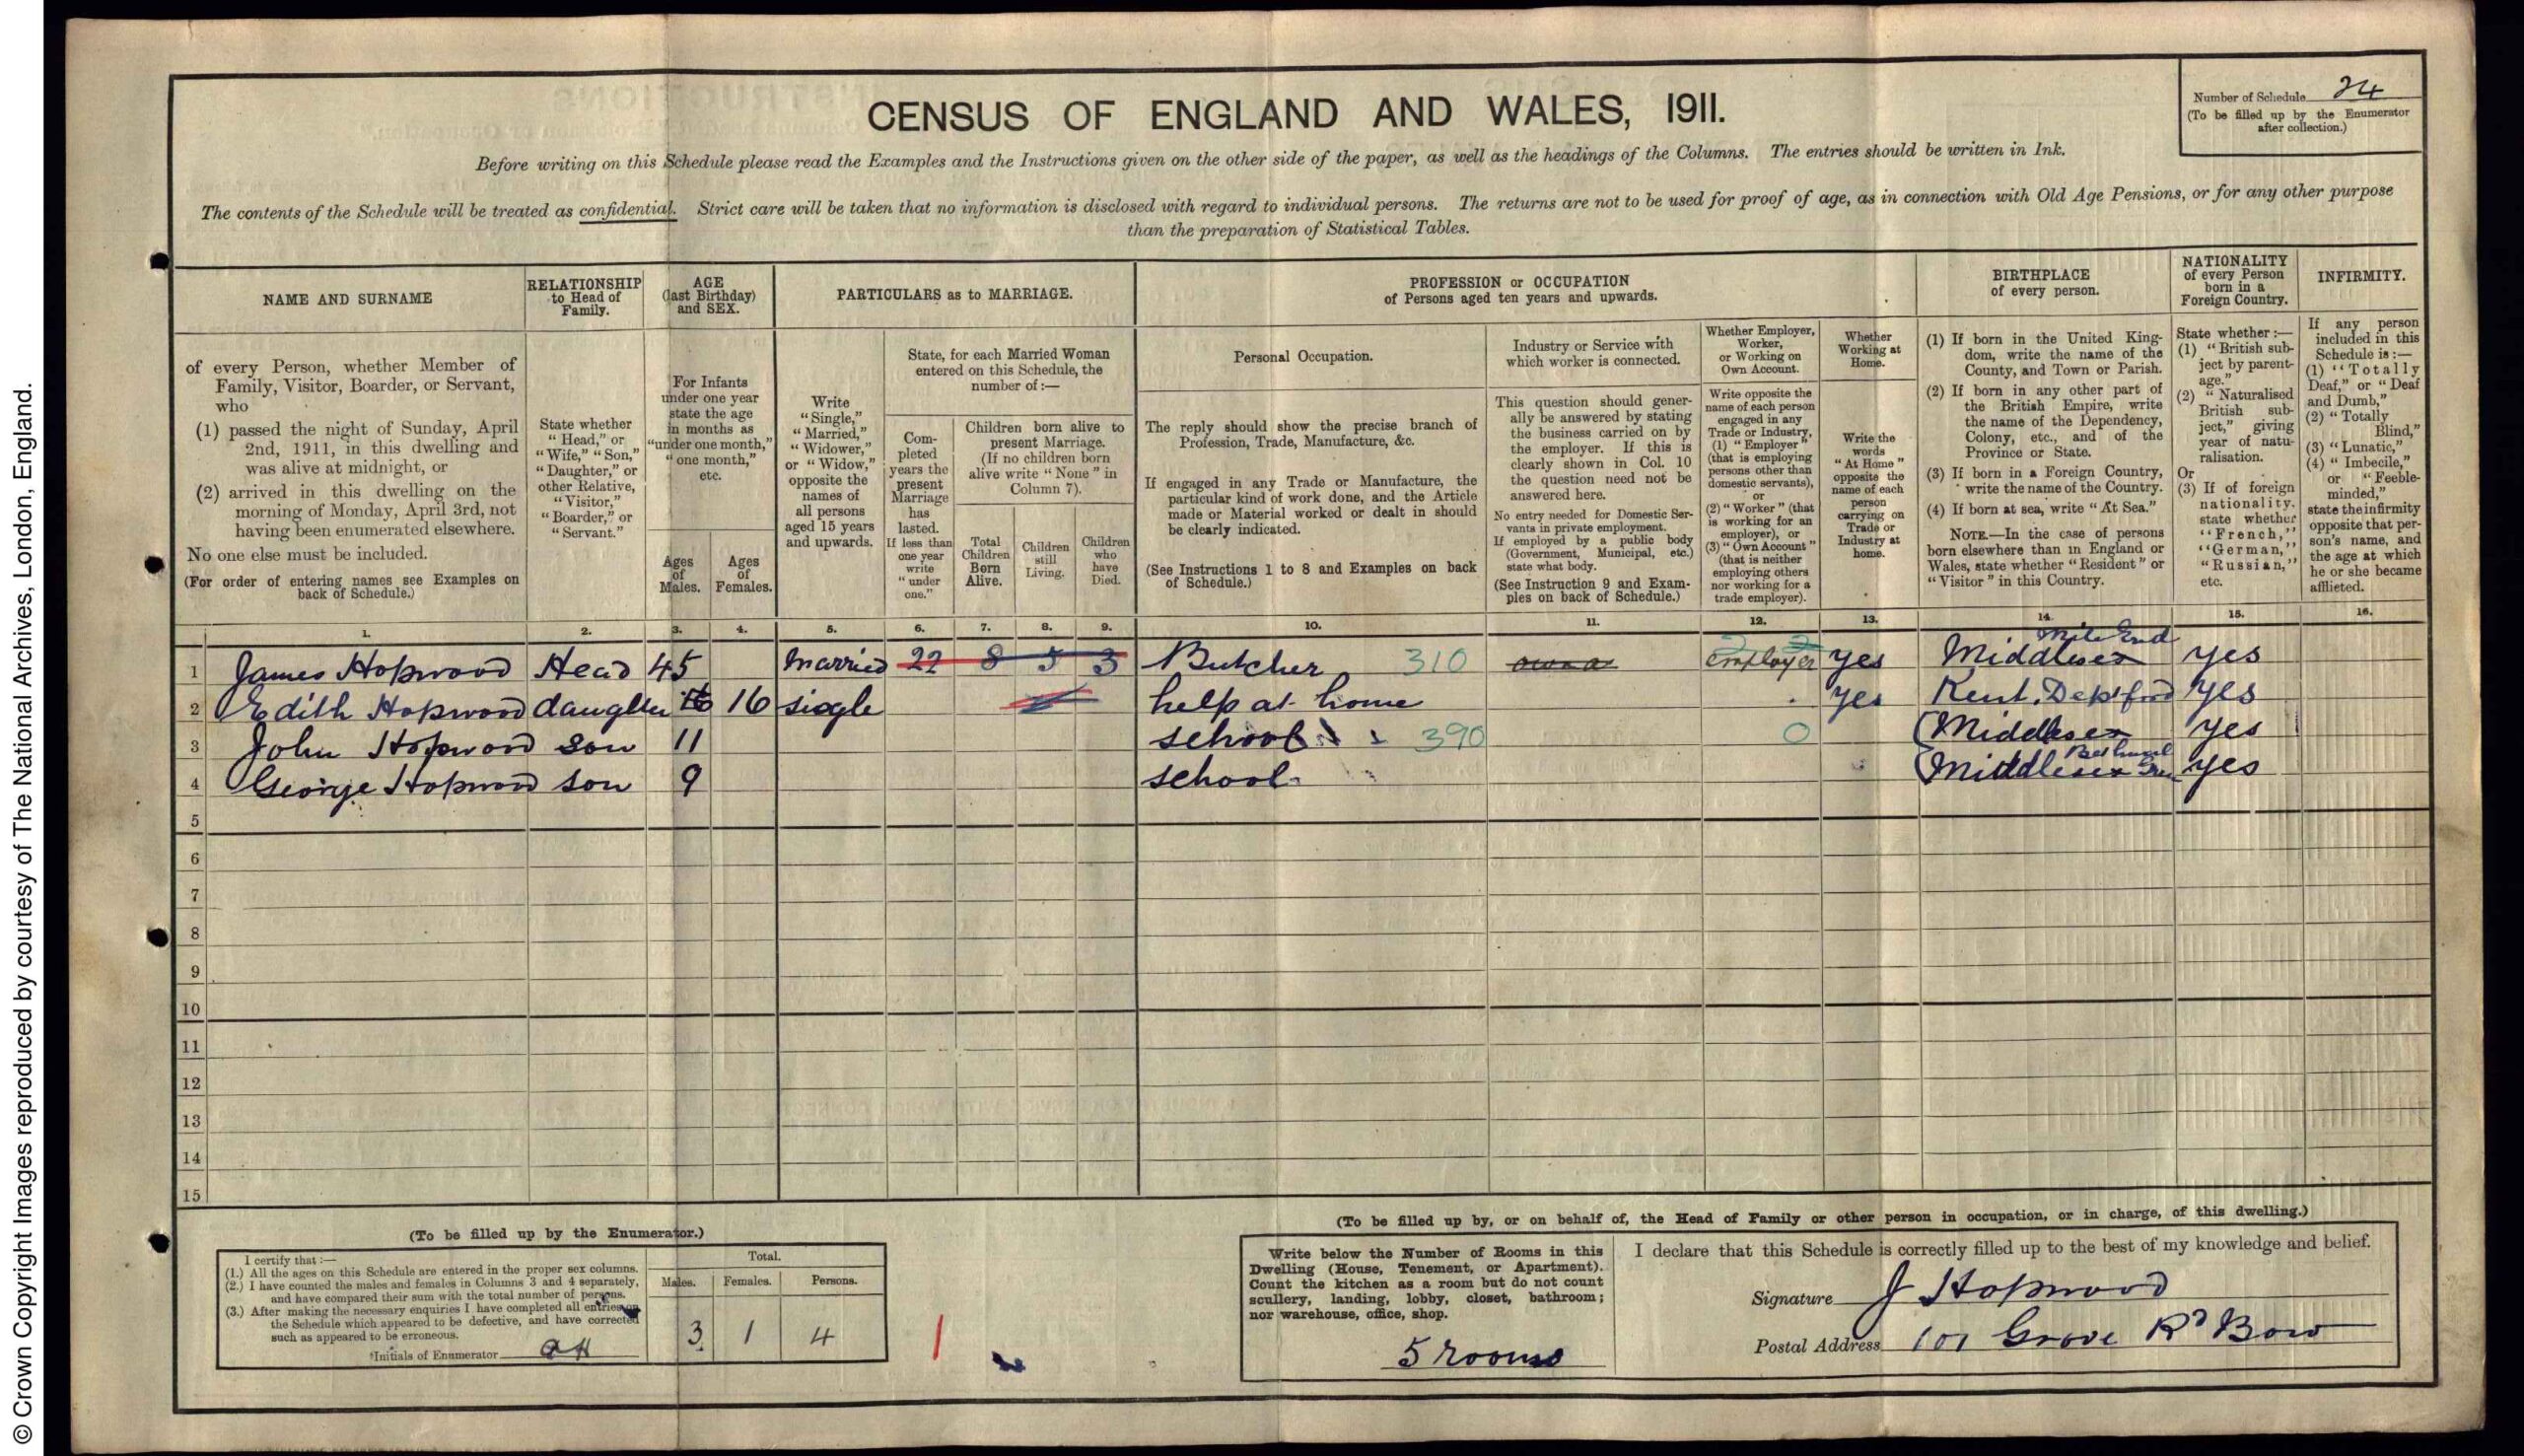 © Crown Copyright Images reproduced by courtesy of The National Archives, London, England.
CENSUS OF ENGLAND AND WALES, 1911.
Number of Schedule 24
(To be filled up by the Enumerator
after collection.)
Before writing on this Schedule please read the Examples and the Instructions given on the other side of the paper, as well as the headings of the Columns. The entries should be written in Ink.
The contents of the Schedule will be treated as confidential. Strict care will be taken that no information is disclosed with regard to individual persons. The returns are not to be used for proof of age, as in connection with Old Age Pensions, or for any other purpose
than the preparation of Statistical Tables.
NAME AND SURNAME
of every Person, whether Member of
Family, Visitor, Boarder, or Servant,
who
(1) passed the night of Sunday, April
2nd, 1911, in this dwelling and
was alive at midnight, or
(2) arrived in this dwelling on the
morning of Monday, April 3rd, not
having been enumerated elsewhere.
No one else must be included.
(For order of entering names see Examples on
back of Schedule.)
RELATIONSHIP
to Head of
Family.
State whether
"Head," or
"Wife," "Son,"
"Daughter," or
other Relative,
"Visitor,"
"Boarder," or
"Servant."
AGE
(last Birthday)
and SEX.
For Infants
under one year
state the age
in months as
"under one month,"
"one month,"
etc.
Ages
of
Males.
Ages
of
Females.
PARTICULARS as to MARRIAGE.
Write
"Single,"
"Married,"
"Widower,"
or "Widow,"
opposite the
names of
all persons
aged 15 years
and upwards.
State, for each Married Woman
entered on this Schedule, the
number of:—
Com-
pleted
years the
present
Marriage
has
lasted.
If less than
one year
write
"under
one."
Children born alive to
present Marriage.
(If no children born
alive write "None" in
Column 7).
Total
Children
Born
Alive.
Children
still
Living.
Children
who
have
Died.
PROFESSION or OCCUPATION
of Persons aged ten years and upwards.
Personal Occupation.
The reply should show the precise branch of
Profession, Trade, Manufacture, &c.
If engaged in any Trade or Manufacture, the
particular kind of work done, and the Article
made or Material worked or dealt in should
be clearly indicated.
(See Instructions 1 to 8 and Examples on back
of Schedule.)
Industry or Service with
which worker is connected.
This question should gener-
ally be answered by stating
the business carried on by
the employer. If this is
clearly shown in Col. 10
the question need not be
answered here.
No entry needed for Domestic Ser-
vants in private employment.
If employed by a public body
(Government, Municipal, etc.)
state what body.
(See Instruction 9 and Exam-
ples on back of Schedule.)
Whether Employer,
Worker,
or Working on
Own Account.
Write opposite the
name of each person
engaged in any
Trade or Industry,
(1) "Employer"
(that is employing
persons other than
domestic servants),
or
(2) "Worker" (that
is working for an
employer), or
(3) "Own Account"
(that is neither
employing others
nor working for a
trade employer).
Whether
Working at
Home.
Write the
words
"At Home"
opposite the
name of each
person
carrying on
Trade or
Industry at
home.
BIRTHPLACE
of every person.
(1) If born in the United King-
dom, write the name of the
County, and Town or Parish.
(2) If born in any other part of
the British Empire, write
the name of the Dependency,
Colony, etc., and of the
Province or State.
(3) If born in a Foreign Country,
write the name of the Country.
(4) If born at sea, write "At Sea."
NOTE.—In the case of persons
born elsewhere than in England or
Wales, state whether "Resident" or
"Visitor" in this Country.
NATIONALITY
of every Person
born in a
Foreign Country.
State whether:—
(1) "British sub-
ject by parent-
age."
(2) "Naturalised
British sub-
ject," giving
year of natu-
ralisation.
Or
(3) If of foreign
nationality.
state whether
"French,"
"German,"
"Russian,"
etc.
INFIRMITY.
If any person
included in this
Schedule is:—
(1) "Totally
Deaf," or "Deaf
and Dumb,"
(2) "Totally
Blind,"
(3) "Lunatic,"
(4) "Imbecile,"
or "Feeble-
minded,"
state the infirmity
opposite that per-
son's name, and
the age at which
he or she became
afflicted.
1. 2. 3. 4. 5. 6. 7. 8. 9. 10. 11. 12. 13. 14. 15. 16.
Mile End
1 James Hopwood Head 45 Married 22 8 5 3 Butcher 310 Employer yes Middlesex yes
2 Edith Hopwood daughter 16 16 single help at home yes Kent. Deptford yes
3 John Hopwood son 11 school 390 0 Middlesex yes
Bethnal
4 George Hopwood son 9 school Middlesex Green yes
5
6
7
8
9
10
11
12
13
14
15
(To be filled up by the Enumerator.)
I certify that:—
(1.) All the ages on this Schedule are entered in the proper sex columns.
(2.) I have counted the males and females in Columns 3 and 4 separately,
and have compared their sum with the total number of persons.
(3.) After making the necessary enquiries I have completed all entries on
the Schedule which appeared to be defective, and have corrected
such as appeared to be erroneous.
Initials of Enumerator
Total.
Males. Females. Persons.
3 1 4
(To be filled up by, or on behalf of, the Head of Family or other person in occupation, or in charge, of this dwelling.)
Write below the Number of Rooms in this
Dwelling (House, Tenement, or Apartment).
Count the kitchen as a room but do not count
scullery, landing, lobby, closet, bathroom;
nor warehouse, office, shop.
5 rooms
I declare that this Schedule is correctly filled up to the best of my knowledge and belief.
Signature J Hopwood
Postal Address 101 Grove Rd Bow